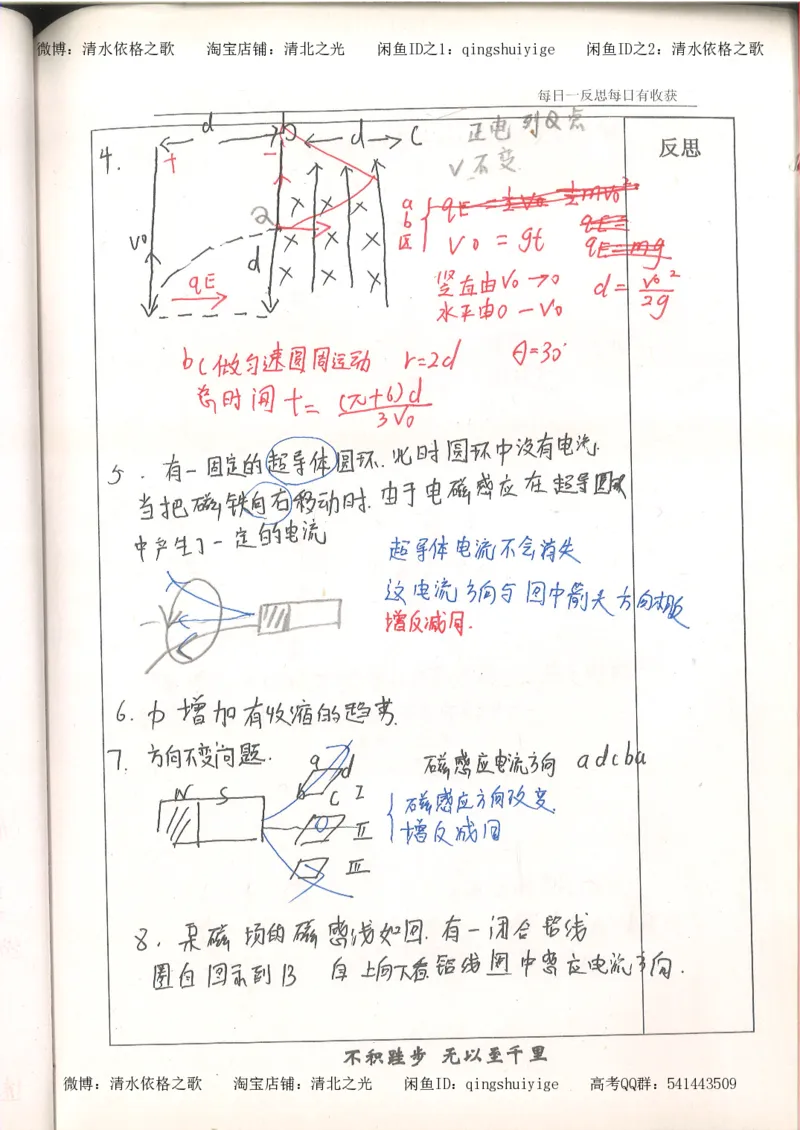 微博：清水依格之歌 淘宝店铺：清北之光 闲鱼ID之1：qingshuiyige 闲鱼ID之2：清水依格之歌
每日一反思每日有收获
反思
4.
d b d C
+ −
正电 到Q点
V不变
Q
V0
d
qE
a
b
区
qE = ½V0 ½mV0²
qE =
V0 = gt
qE = mg
竖直由V0→0
水平由0−V0
d = V0²/2g
bC做匀速圆周运动 r=2d θ=30°
总时间 t= (π+6)d/3V0
5. 有一固定的超导体圆环.此时圆环中没有电流.
当把磁铁向右移动时.由于电磁感应在超导圆
中产生了一定的电流
超导体电流不会消失
这电流方向与图中箭头方向相反
增反减同.
6. φ增加有收缩的趋势.
7. 方向不变问题.
N S
a d
b c I
II
III
磁感应电流方向 adcba
磁感应方向改变
增反减同
8. 某磁场的磁感线如图.有一闭合铝线
圈自图示到B 自上向下看铝线圈中感应电流方向.
不积跬步 无以至千里
微博：清水依格之歌 淘宝店铺：清北之光 闲鱼ID：qingshuiyige 高考QQ群：541443509